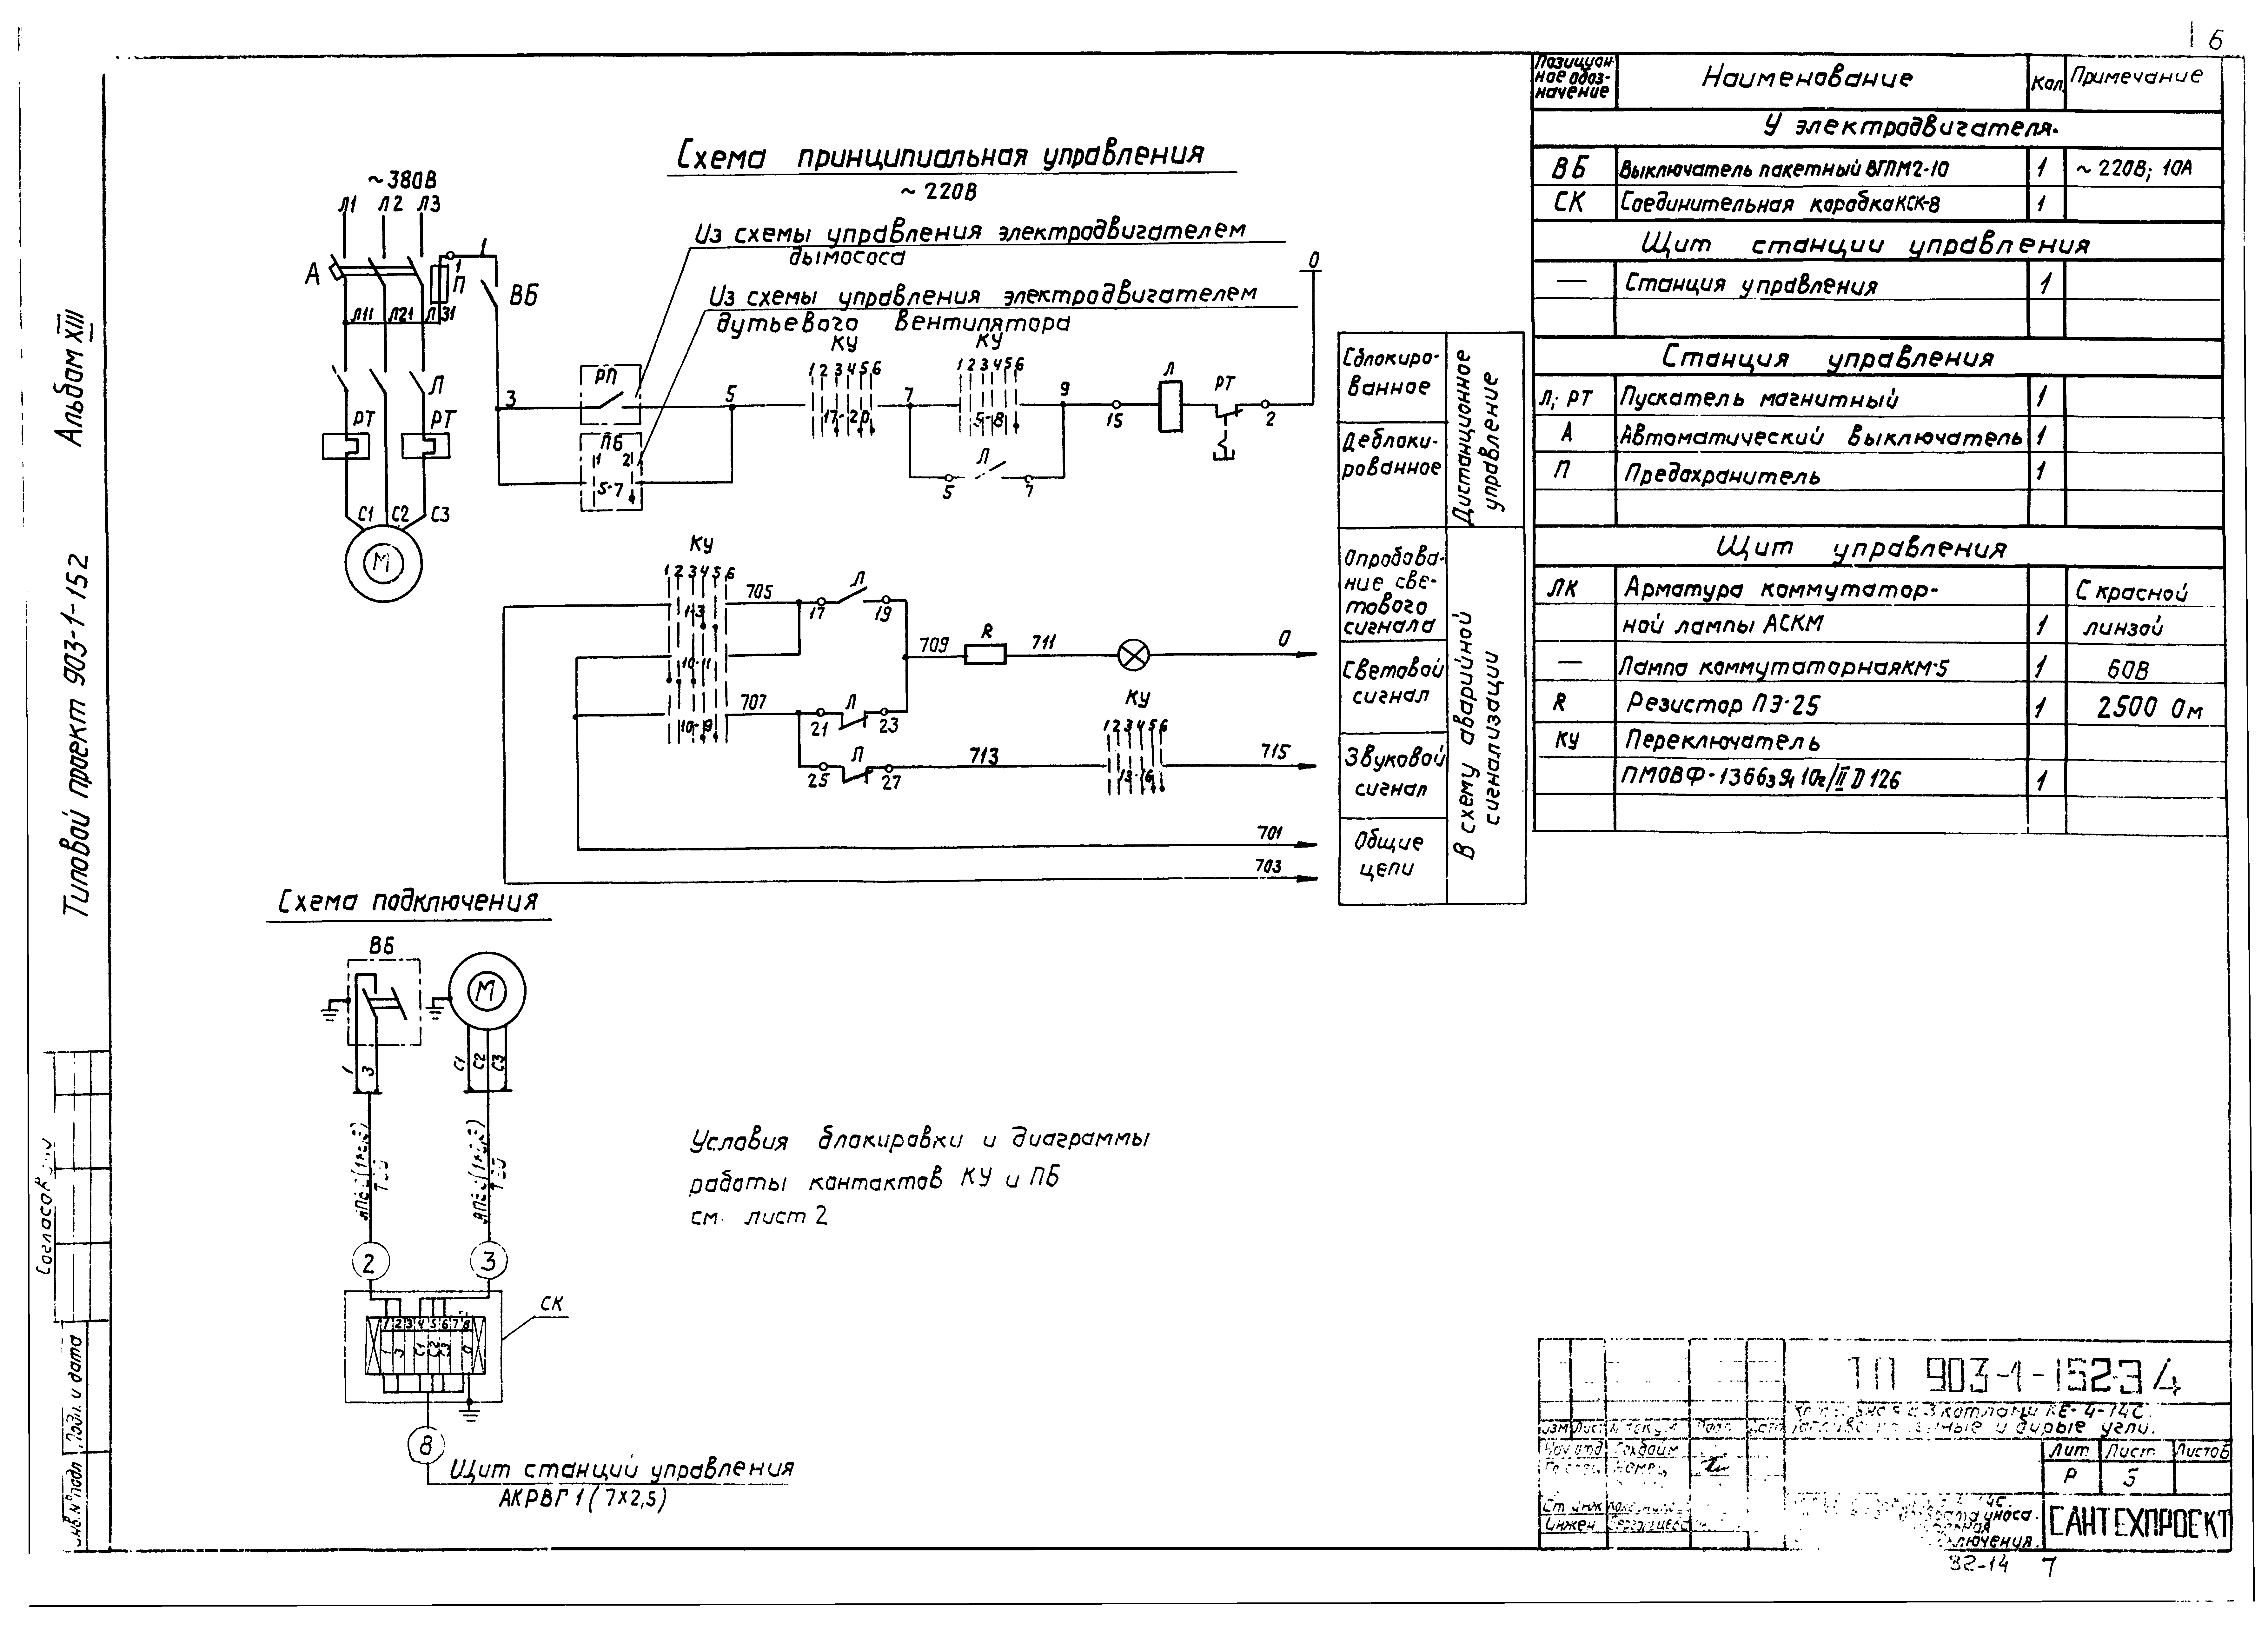 6
Альбам XIII
Типовой проект 903-1-152
Схема принципиальная управления
~ 220В
~ 380В
Л1 Л2 Л3
А
1
1
П
ВБ
Л11 Л21 Л31
Л
РТ РТ
С1 С2 С3
М
Из схемы управления электродвигателем
дымососа
Из схемы управления электродвигателем
дутьевого вентилятора
КУ КУ
0
3
РП
5
1 2 3 4 5 6
17-20
7
1 2 3 4 5 6
5-8
9
15
Л
РТ
2
ПБ
1 2
5-7
Л
5 7
КУ
1 2 3 4 5 6
705
1-3
17
Л
19
10-11
709
R
711
0
707
10-9
21
Л
23
КУ
1 2 3 4 5 6
25
Л
27
713
13-16
715
701
703
Сблокиро-
ванное
Деблоки-
рованное
Дистанционное
управление
Опробова-
ние све-
тового
сигнала
Световой
сигнал
Звуковой
сигнал
Общие
цепи
В схему аварийной
сигнализации
Позицион-
ное обоз-
начение
Наименование
Кол.
Примечание
У электродвигателя.
ВБ Выключатель пакетный ВГПМ2-10 1 ~ 220В; 10А
СК Соединительная коробка КСК-8 1
Щит станции управления
— Станция управления 1
Станция управления
Л; РТ Пускатель магнитный 1
А Автоматический выключатель 1
П Предохранитель 1
Щит управления
ЛК Арматура коммутатор- С красной
ной лампы АСКМ 1 линзой
— Лампа коммутаторная КМ-5 1 60В
R Резистор ПЭ-25 1 2500 Ом
КУ Переключатель
ПМОВФ-1366 1
Схема подключения
ВБ
М
1 3
С1 С2 С3
2
3
СК
1 2 3 4 5 6 7 8
1 3 С1 С2 С3 0
8
Щит станций управления
АКРВГ 1 (7х2,5)
Условия блокировки и диаграммы
работы контактов КУ и ПБ
см. лист 2
Согласов
Инв.№подл Подп. и дата
ТП 903-1-152 Э4
котлами КЕ-4-14С.
и бурые угли.
Лит Лист Листов
Р 5
Ст инж
Инжен
уноса.
САНТЕХПРОЕКТ
32-14 7